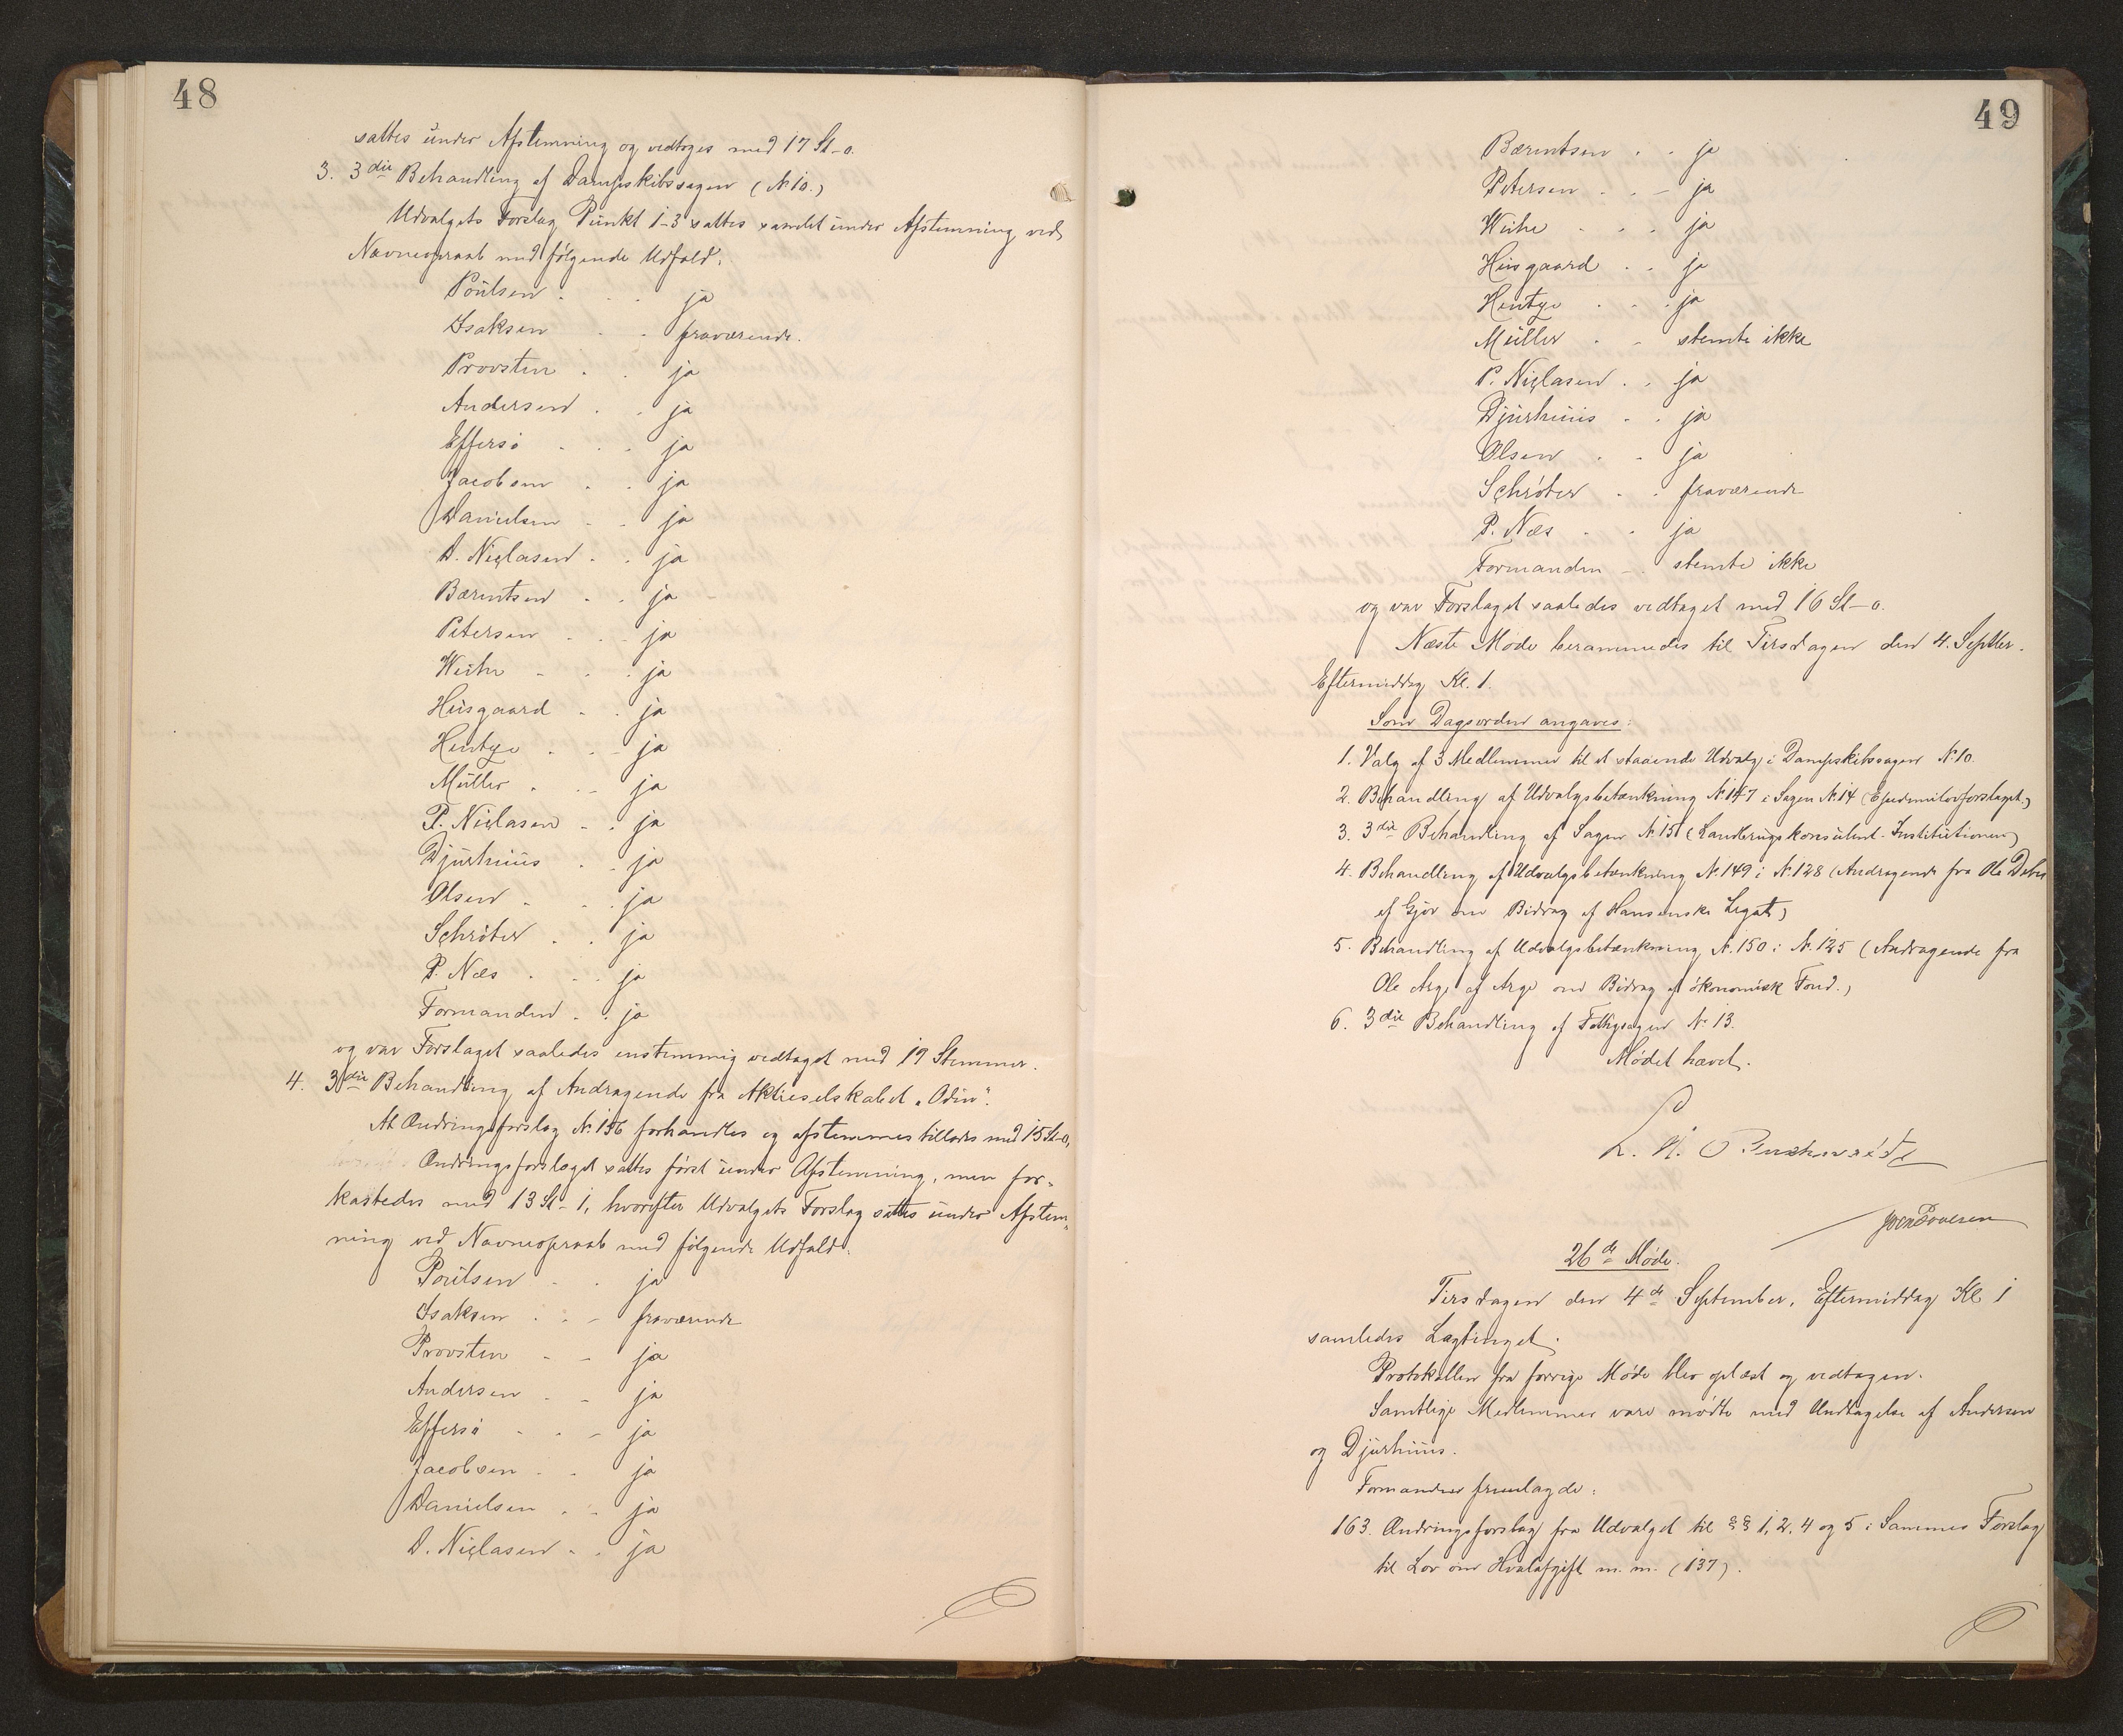 48
sattes under Afstemning og vedtoges med 17 St-0.
3. 3die Behandling af Dampskibssagen (N. 10.)
Udvalgets Forslag Punkt 1-3 sattes samlet under Afstemning ved
Navneopraab med følgende Udfald:
Poulsen . . . ja
Isaksen . . fraværende.
Provsten . . ja
Andersen . . ja
Effersø . . . ja
Jacobsen . . ja
Danielsen . . ja
D. Niclasen . . ja
Bærentsen . . ja
Petersen . . . ja
Weihe . . . ja
Husgaard . . ja
Hentze . . . ja
Müller . . . ja
P. Niclasen . . ja
Djurhuus . . ja
Olsen . . . ja
Schrøter . . ja
P. Næs . . . ja
Formanden . . ja
og var Forslaget saaledes enstemmig vedtaget med 19 Stemmer.
4. 3die Behandling af Andragende fra Aktieselskabet "Odin".
At Ændringsforslag N. 156 forhandles og afstemmes tillodes med 15 St-0,
Ændringsforslaget sattes først under Afstemning, men for-
kastedes med 13 St-1, hvorefter Udvalgets Forslag sattes under Afstem-
ning ved Navneopraab med følgende Udfald:
Poulsen . . ja
Isaksen . . - fraværende
Provsten - - ja
Andersen . - ja
Effersø - . - ja
Jacobsen . . ja
Danielsen . . ja
D. Niclasen . . ja
49
Bærentsen . . ja
Petersen . . - ja
Weihe . . . ja
Husgaard . . ja
Hentze . . . ja
Müller . - stemte ikke
P. Niclasen . . ja
Djurhuus . . ja
Olsen . . ja
Schrøter . . fraværende
P. Næs . . ja
Formanden - . stemte ikke
og var Forslaget saaledes vedtaget med 16 St-0.
Næste Møde berammedes til Tirsdagen den 4. Septber.
Eftermiddag Kl. 1.
Som Dagsorden angaves:
1. Valg af 3 Medlemmer til et staaende Udvalg i Dampskibssagen N. 10.
2. Behandling af Udvalgsbetænkning N. 147 i Sagen N. 14 (Epidemilovforslaget.)
3. 3die Behandling af Sagen N. 151 (Landbrugskonsulent-Institutionen)
4. Behandling af Udvalgsbetænkning N. 149 i N. 128 (Andragende fra Ole Debes
af Gjov om Bidrag af Hansenske Legat)
5. Behandling af Udvalgsbetænkning N. 150 i N. 125 (Andragende fra
Ole Arge af Arge om Bidrag af økonomisk Fond.)
6. 3die Behandling af N. 13.
Mødet hævet.
26de Møde.
Tirsdagen den 4de September, Eftermiddag Kl 1
samledes Lagtinget.
Protokollen fra forrige Møde blev oplæst og vedtagen.
Samtlige Medlemmer vare mødte med Undtagelse af Andersen
og Djurhuus.
Formanden fremlagde:
163. Ændringsforslag fra Udvalget til §§ 1, 2, 4 og 5 i Sammes Forslag
til Lov om Hvalafgift m. m. (137).